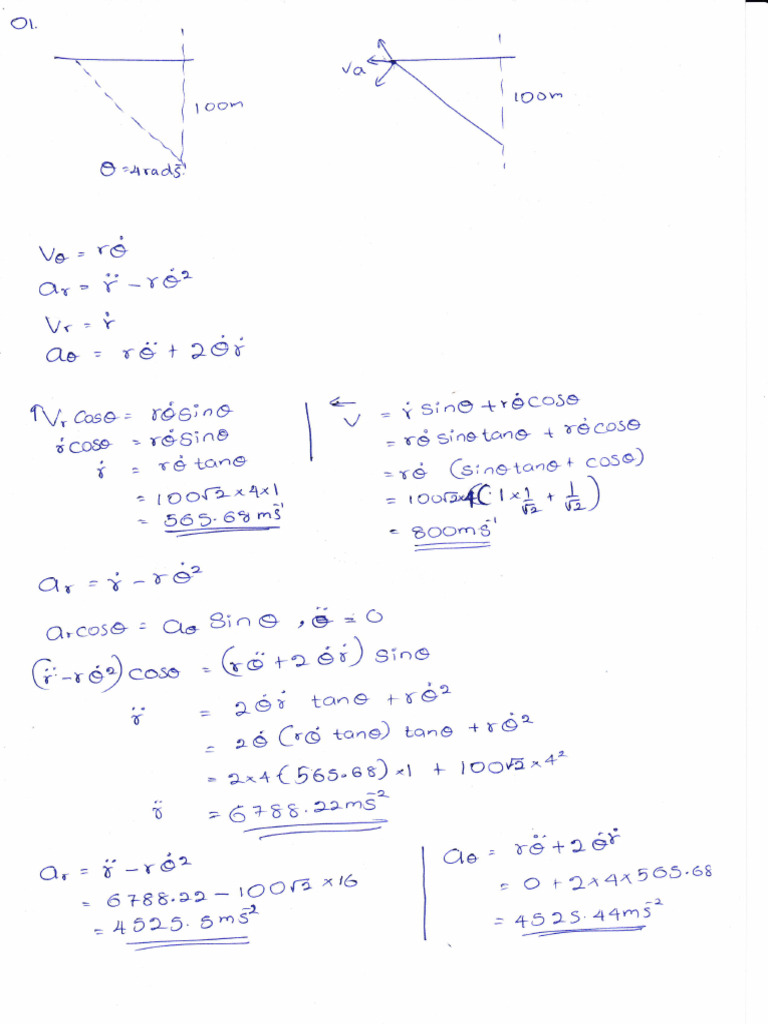 01.
100m
θ =4rads⁻¹
Va
100m
Vθ = rθ̇
ar = r̈ - rθ̇²
Vr = ṙ
aθ = rθ̈ + 2θ̇ṙ
↑Vr Cosθ = rθ̇sinθ
ṙcosθ = rθ̇sinθ
ṙ = rθ̇ tanθ
= 100√2 ×4×1
= 565.68 ms⁻¹
←V = ṙ sinθ + rθ̇cosθ
= rθ̇ sinθtanθ + rθ̇cosθ
= rθ̇ (sinθtanθ + cosθ)
= 100√2×4(1×1/√2 + 1/√2)
= 800ms⁻¹
ar = ṙ - rθ̇²
arcosθ = aθ Sinθ , θ̈ = 0
(r̈-rθ̇²)cosθ = (rθ̈ + 2θ̇ṙ) sinθ
r̈ = 2θ̇ṙ tanθ + rθ̇²
= 2θ̇ (rθ̇ tanθ) tanθ + rθ̇²
= 2×4(565.68)×1 + 100√2 ×4²
r̈ = 6788.22ms⁻²
ar = r̈ - rθ̇²
= 6788.22 - 100√2 ×16
= 4525.5ms⁻²
aθ = rθ̈ + 2θ̇ṙ
= 0 + 2×4×565.68
= 4525.44ms⁻²